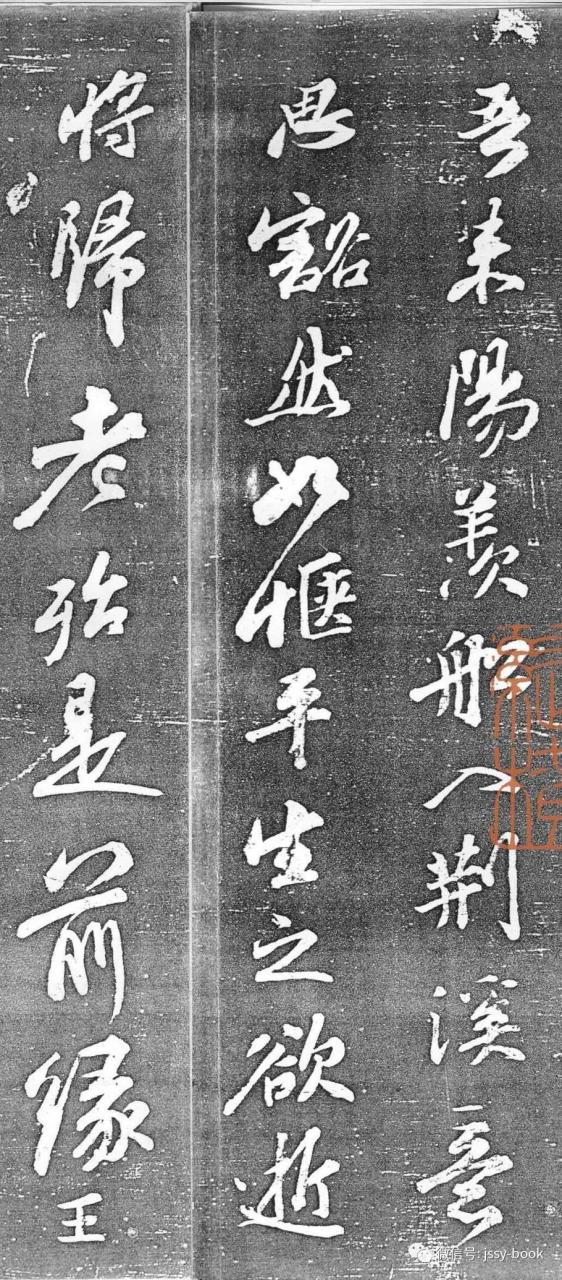 吾来陽羨船入荆溪意
思豁然如愜平生之欲逝
將歸老殆是前緣王
微信号: jssy-book